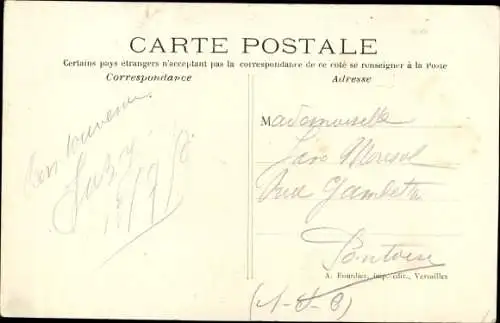 CARTE POSTALE
Certains pays étrangers n'acceptant pas la correspondance de ce coté se renseigner à la Poste
Correspondance
Adresse
Bon souvenir
Mademoiselle
Rue Gambetta
Pontoise
A. Bourdier, imp. édit., Versailles